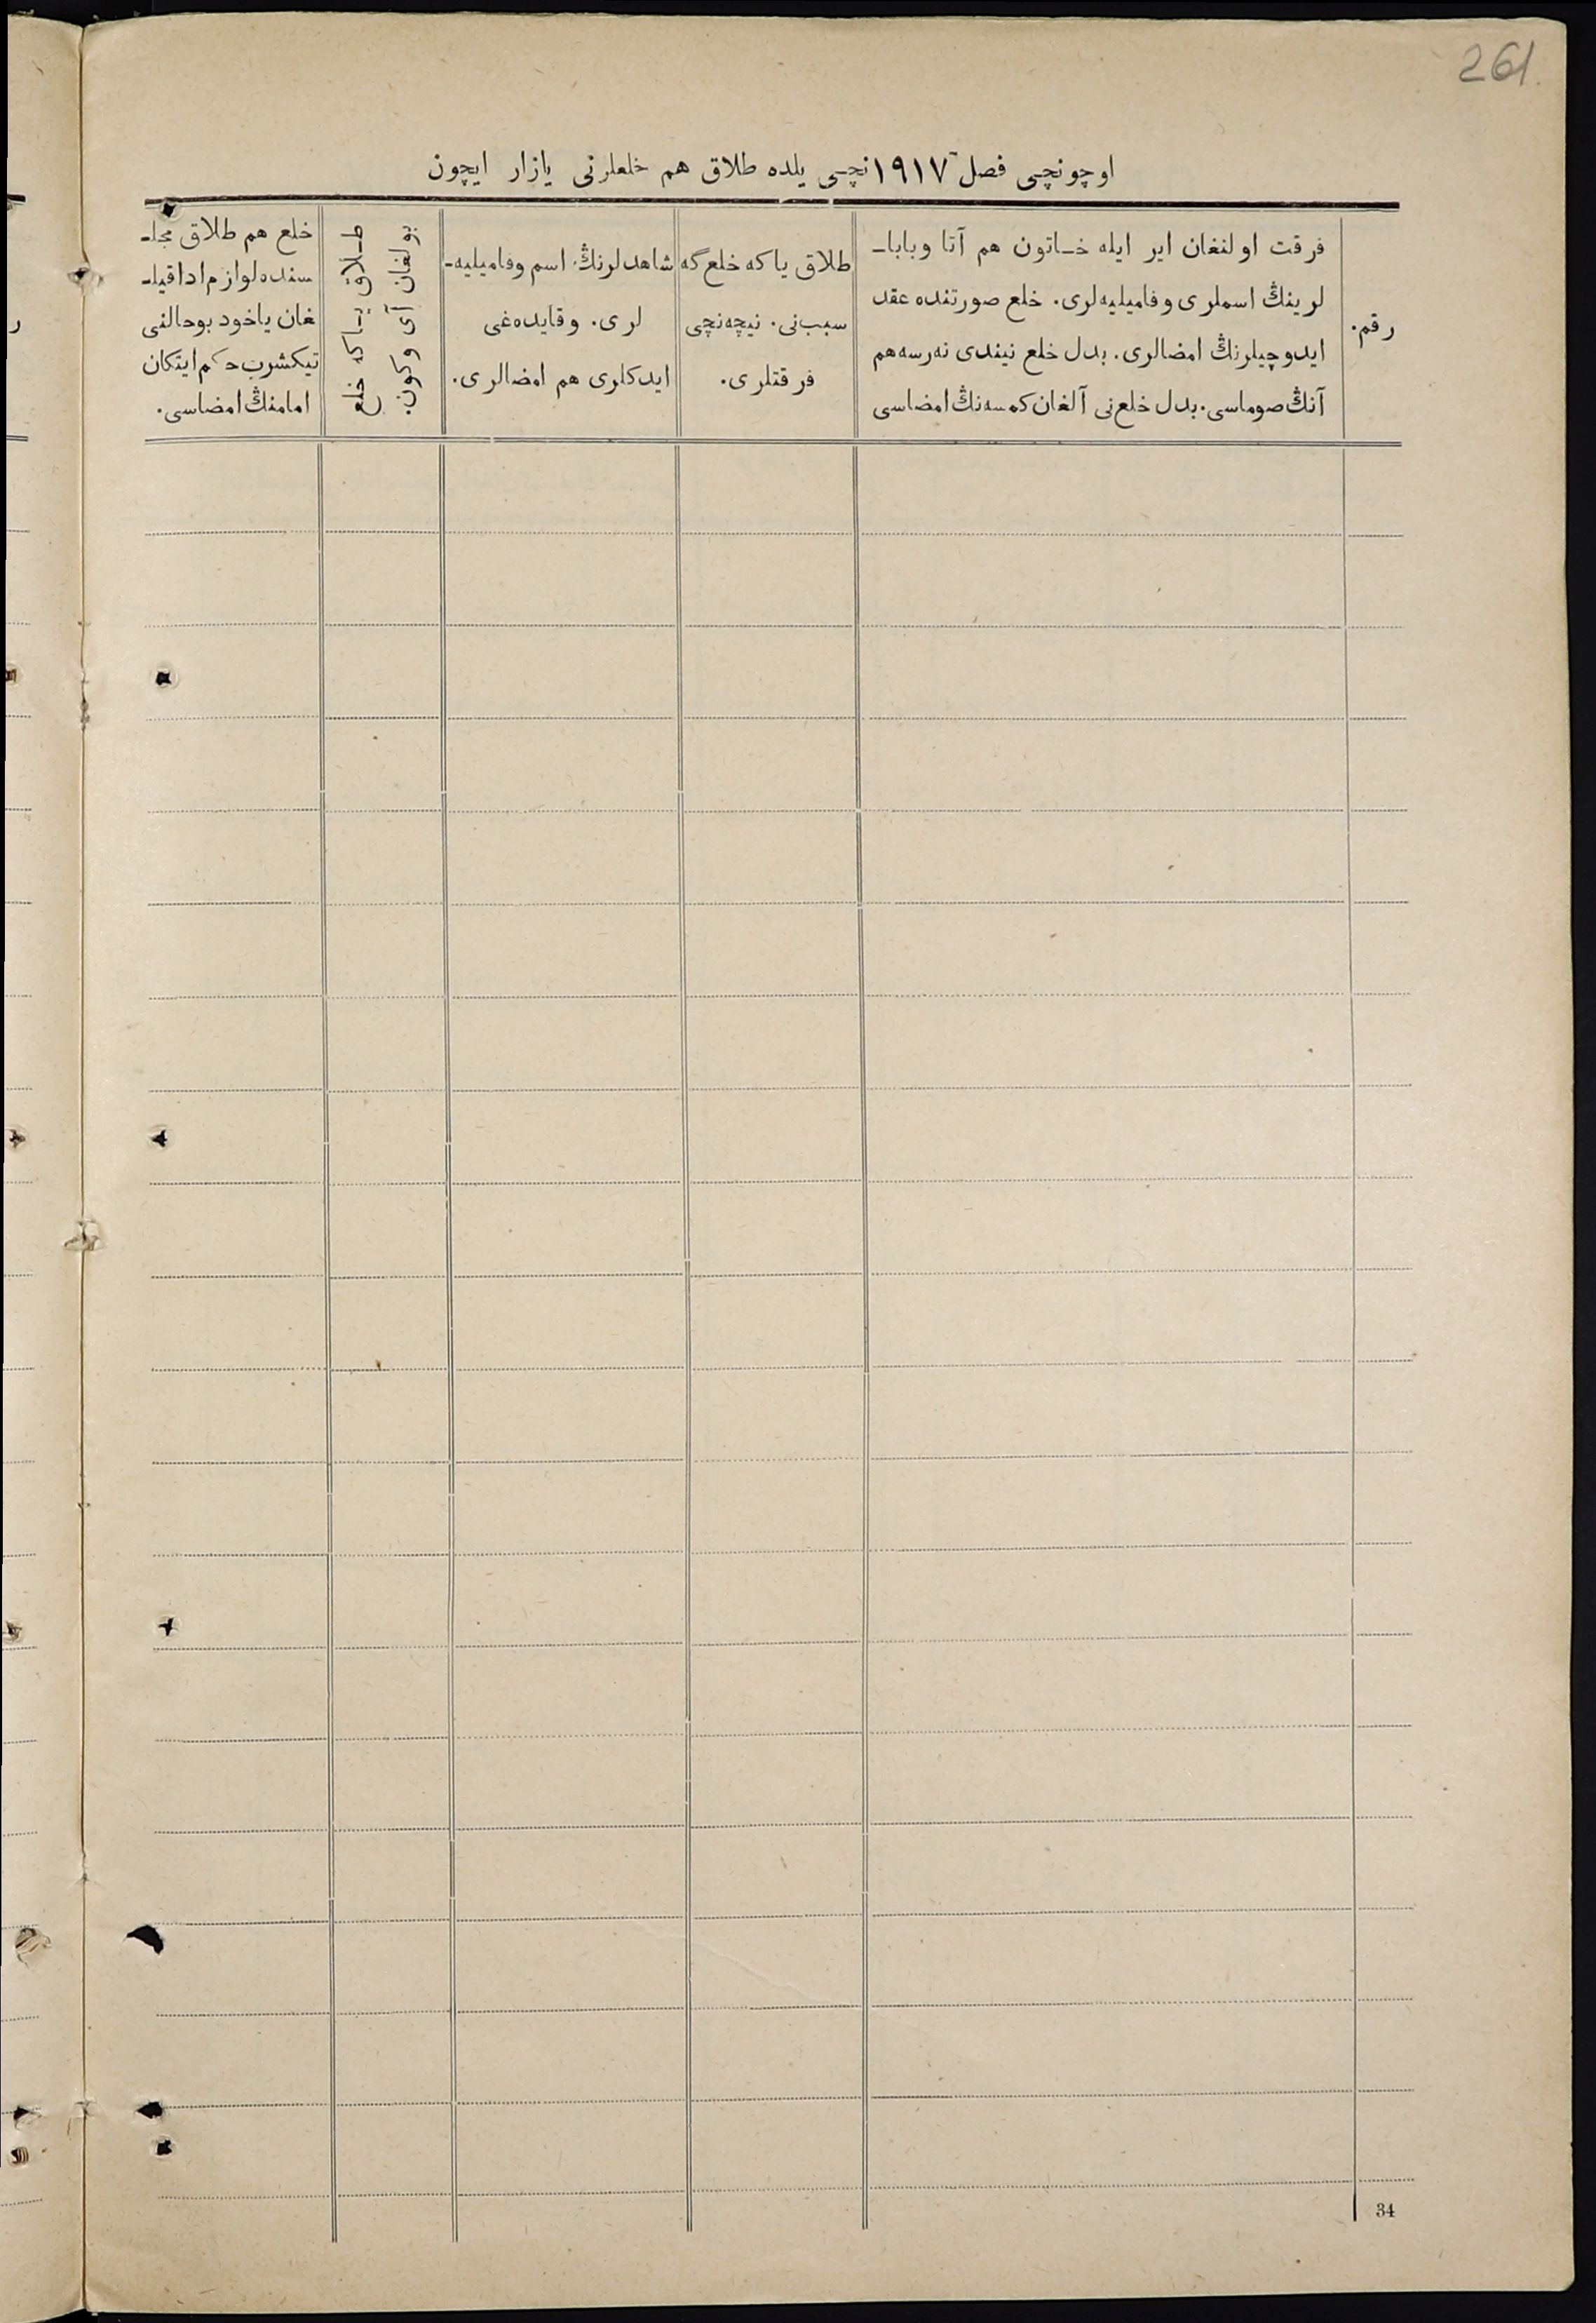 261.
اوچونچی فصل ۱۹۱۷ نچی یلده طلاق هم خلعلرنی یازار ایچون
رقم.
فرقت اولنغان ایر ایله خاتون هم آتا وبابا-
لرینڭ اسملری وفامیلیه‌لری. خلع صورتنده عقد
ایدوچیلرنڭ امضالری. بدل خلع نیندی نه‌رسه هم
آنڭ صوماسی. بدل خلع‌نی آلغان کمسه‌نڭ امضاسی
طلاق یا که خلع گه
سبب‌نی. نیچه‌نچی
فرقتلری.
شاهدلرنڭ اسم وفامیلیه-
لری. وقایده‌غی
ایدکلری هم امضالری.
طلاق یاکه خلع
بولغان آی وکون.
خلع هم طلاق مجلـ
سنده لوازم ادا قیلـ
غان یاخود بوحالنی
تیکشرب حکم ایتکان
امامنڭ امضاسی.
34